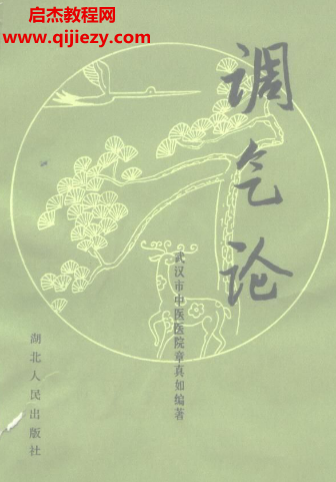 启杰教程网
www.qijiezy.com
调气论
武汉市中医医院章真如编著
湖北人民出版社